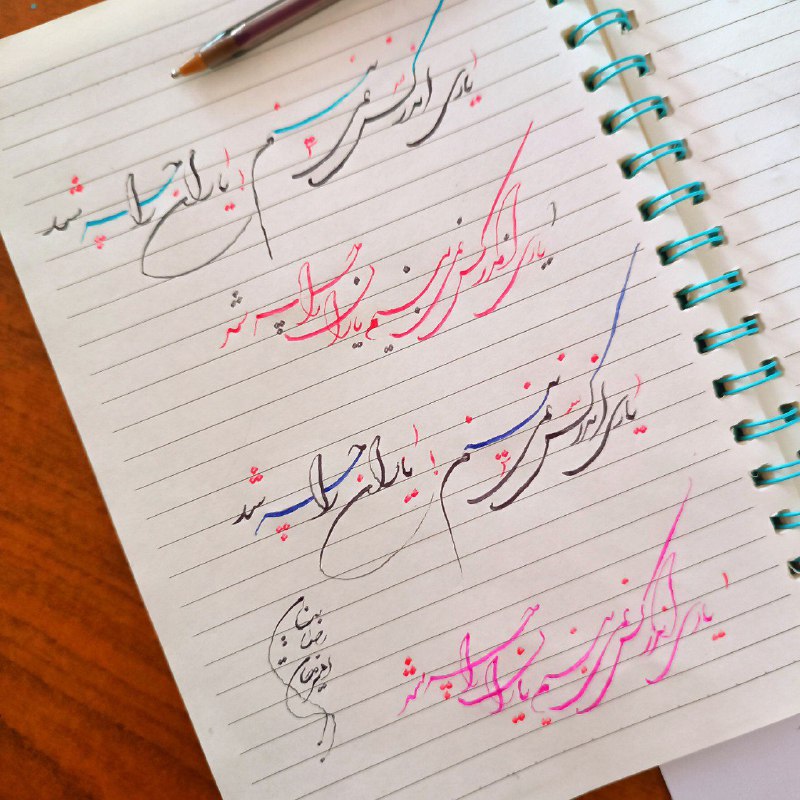 یاری اندر کس نمی بینیم یاران را چه شد
یاری اندر کس نمی بینیم یاران را چه شد
یاری اندر کس نمی بینیم یاران را چه شد
یاری اندر کس نمی بینیم یاران را چه شد